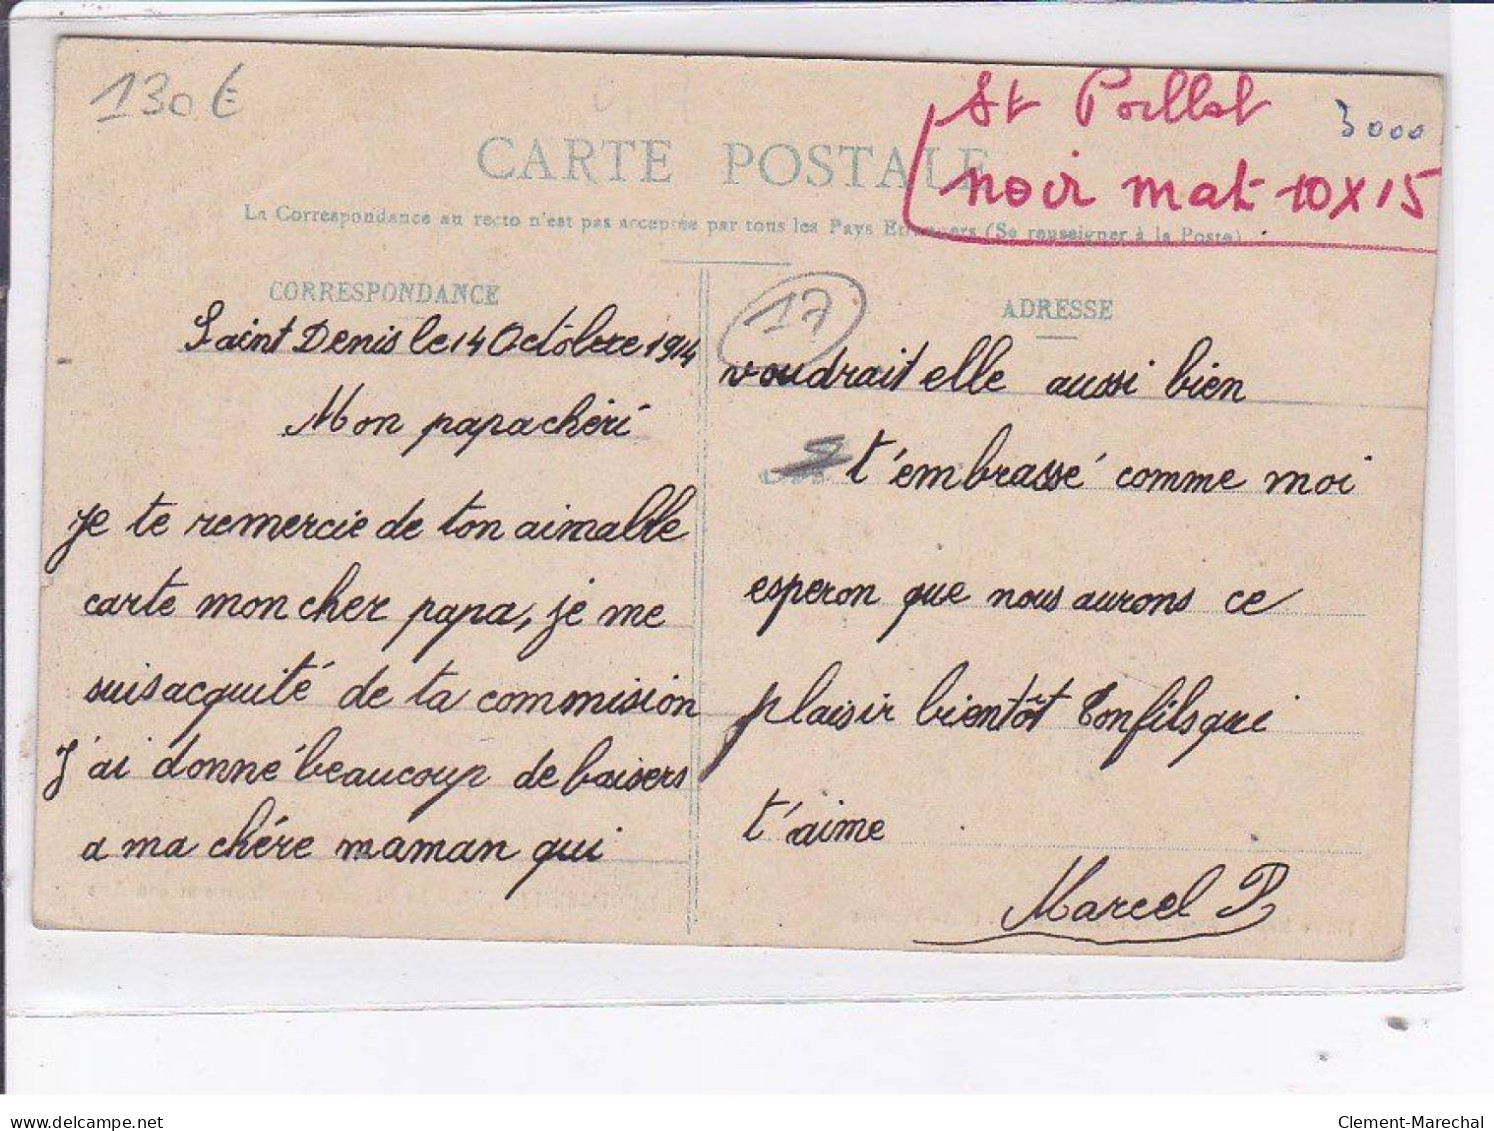 130 €
St Poillot
3000
CARTE POSTALE
noir mat 10x15
La Correspondance au recto n'est pas acceptée par tous les Pays Etrangers (Se renseigner à la Poste)
CORRESPONDANCE
Saint Denis le 14 Octobre 1914
Mon papa chéri
je te remercie de ton aimable
carte mon cher papa, je me
suis acquité de ta commision
J'ai donné beaucoup de baisers
a ma chére maman qui
17
ADRESSE
voudrait elle aussi bien
t'embrassé comme moi
esperon que nous aurons ce
plaisir bientôt Ton fils qui
t'aime
Marcel P
delcampe.net
Clement-Marechal